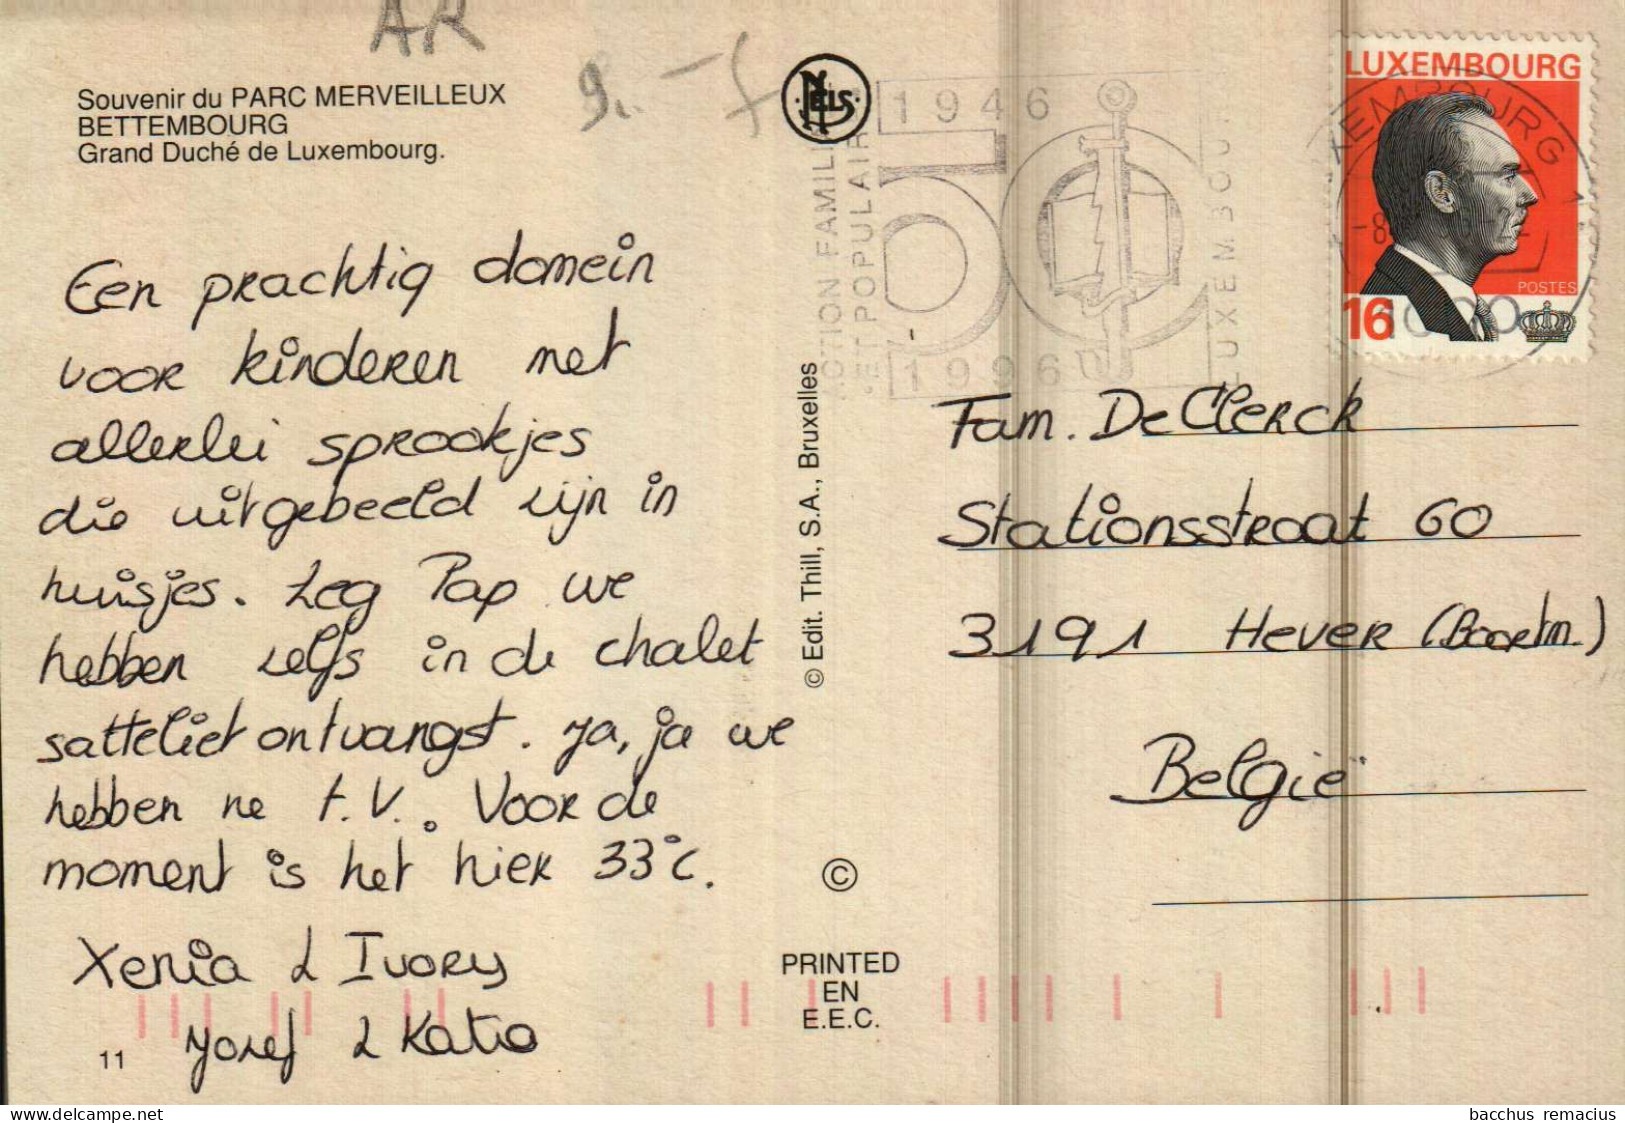 AR
9.-
Souvenir du PARC MERVEILLEUX
BETTEMBOURG
Grand Duché de Luxembourg.
Een prachtig domein
voor kinderen met
allerlei sprookjes
die uitgebeeld zijn in
huisjes. Zeg Pap we
hebben zelfs in de chalet
satteliet ontvangst. Ja, ja we
hebben ne t.V.. Voor de
moment is het hier 33°C.
Xenia & Ivory
Jozef & Katia
11
NELS
© Edit. Thill, S.A., Bruxelles
©
PRINTED
EN
E.E.C.
1946
50
1996
ACTION FAMILIALE
ET POPULAIRE
LUXEMBOURG
LUXEMBOURG
POSTES
16
Fam. De Clerck
Stationsstraat 60
3191 Hever (Boortm.)
België
delcampe.net
bacchus remacius